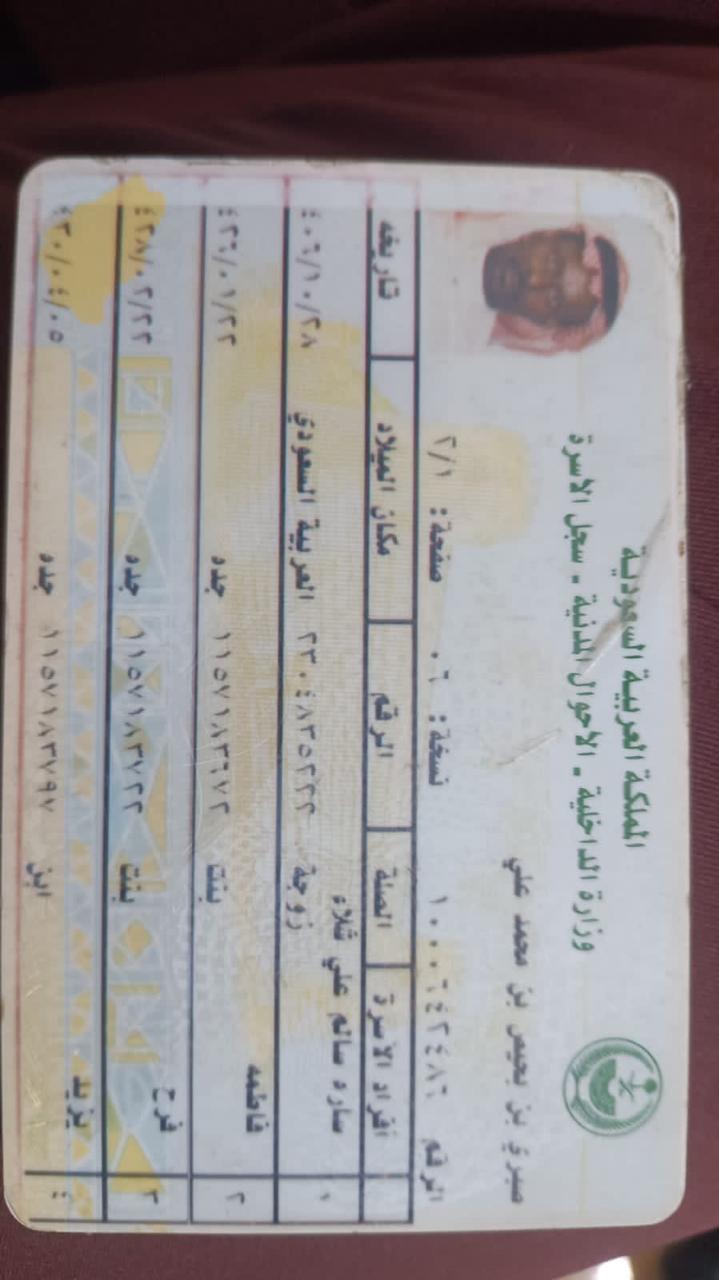 المملكة العربية السعودية
وزارة الداخلية - الأحوال المدنية - سجل الأسرة
صبري بن بحيص بن محمد علي
الرقم ١٠٠٠٦٤٢٤٨٦ نسخة: ٠٦ صفحة: ٢/١
أفراد الأسرة الصلة الرقم مكان الميلاد تاريخه
١ ساره سالم علي زوجة ٢٣٠٤٨٣٥٢٢٢ العربية السعودي ٤٠٦/١٠/٢٨
٢ فاطمه بنت ١١٥٧١٨٣٦٧٢ جده ٤٢٦/٠١/٢٢
٣ فرح بنت ١١٥٧١٨٣٧٢٢ جده ٤٢٨/٠٢/٢٢
٤ يزيد ابن ١١٥٧١٨٣٧٩٧ جده ٤٣٠/٠٤/٠٥